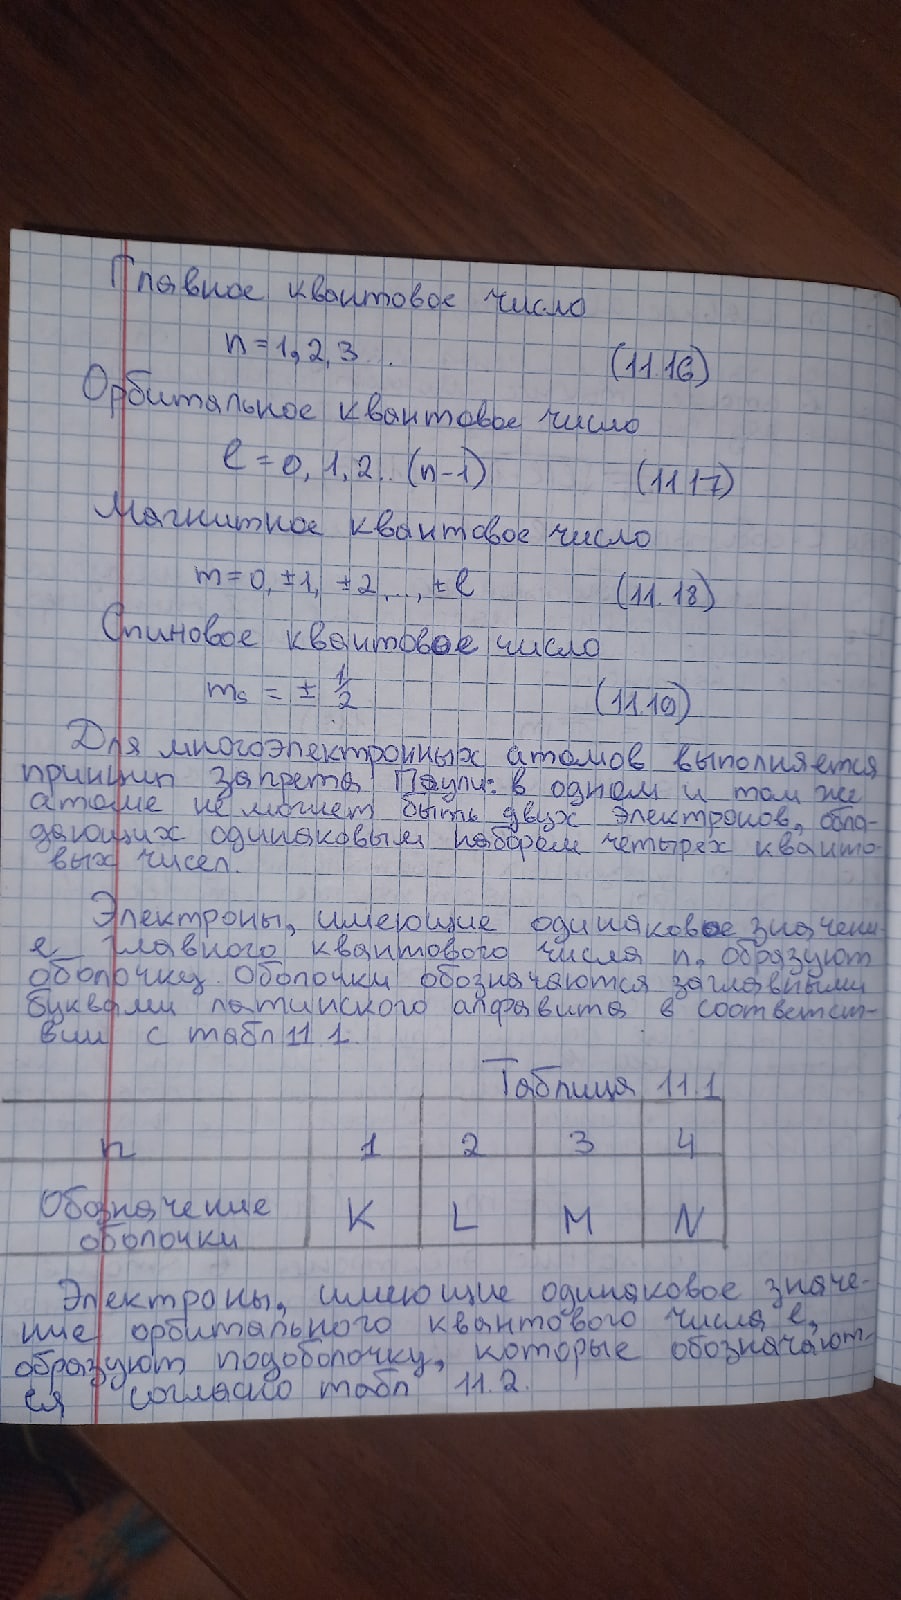 Главное квантовое число
n = 1, 2, 3 . (11.16)
Орбитальное квантовое число
l = 0, 1, 2.. (n-1) (11.17)
Магнитное квантовое число
m = 0, ±1, ±2, ..., ±l (11.18)
Спиновое квантовое число
ms = ± 1/2 (11.19)
Для многоэлектронных атомов выполняется
принцип запрета Паули: в одном и том же
атоме не может быть двух электронов, обла-
дающих одинаковым набором четырех кванто-
вых чисел.
Электроны, имеющие одинаковое значени-
е главного квантового числа n, образуют
оболочку. Оболочки обозначаются заглавными
буквами латинского алфавита в соответст-
вии с табл 11.1.
Таблица 11.1
n 1 2 3 4
Обозначение
оболочки K L M N
Электроны, имеющие одинаковое значе-
ние орбитального квантового числа l,
образуют подоболочку, которые обозначают-
ся согласно табл 11.2.